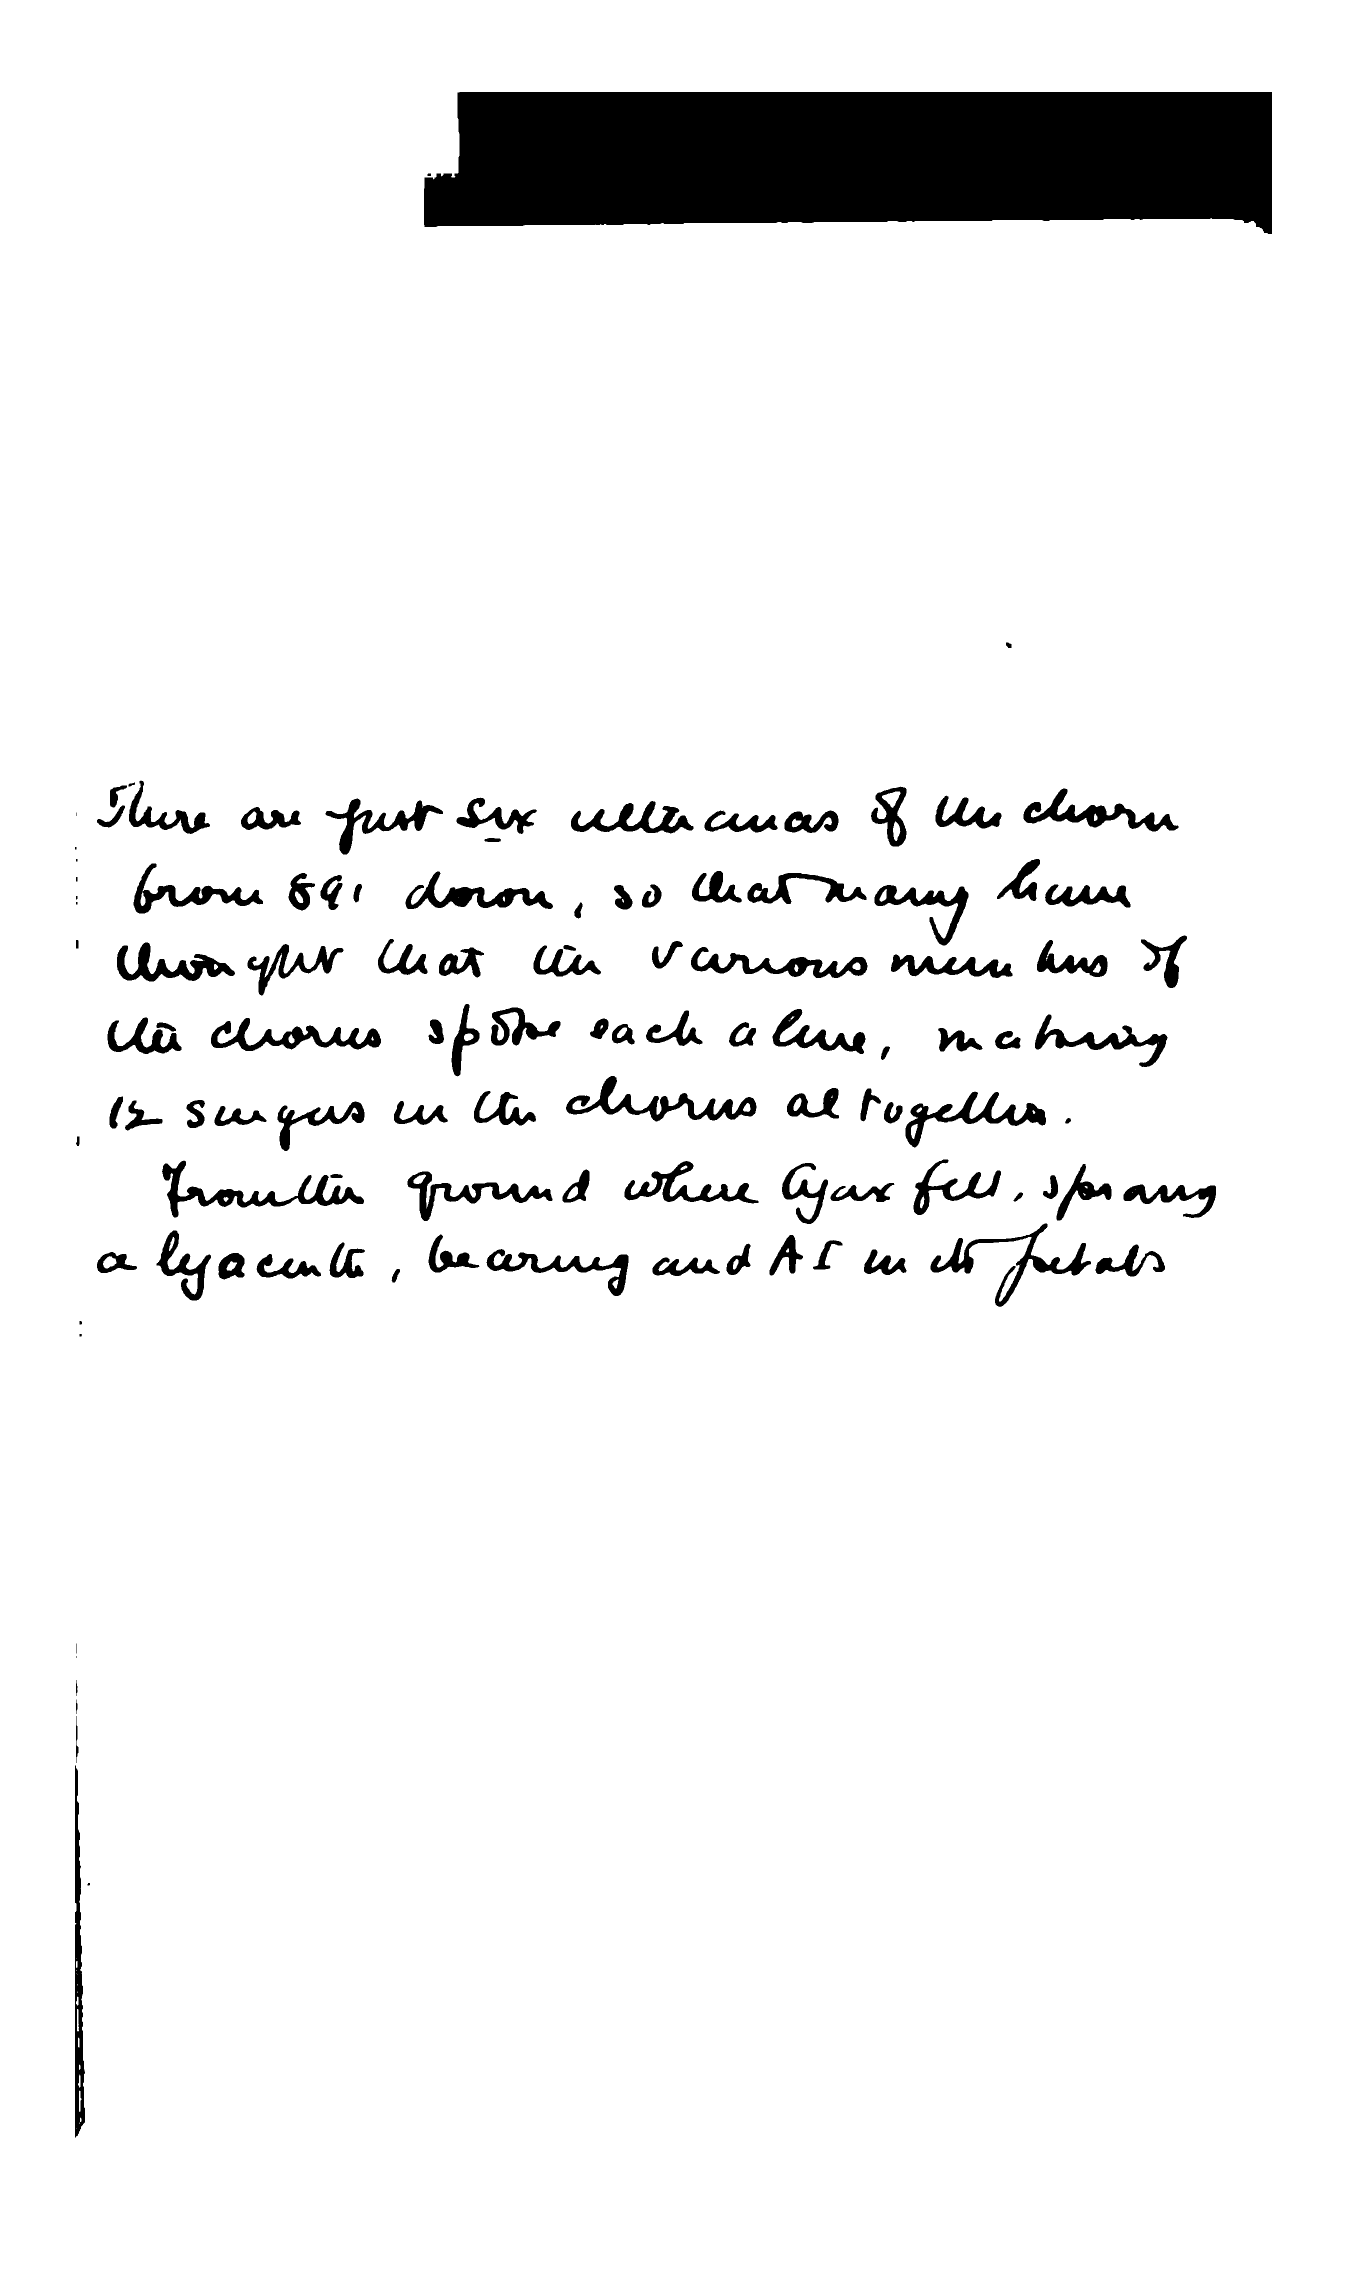 There are just six utterances of the chorus
from 891 down, so that many have
thought that the various members of
the chorus spoke each a line, making
12 singers in the chorus altogether.
From the ground where Ajax fell, sprang
a hyacinth, bearing and AI in its petals